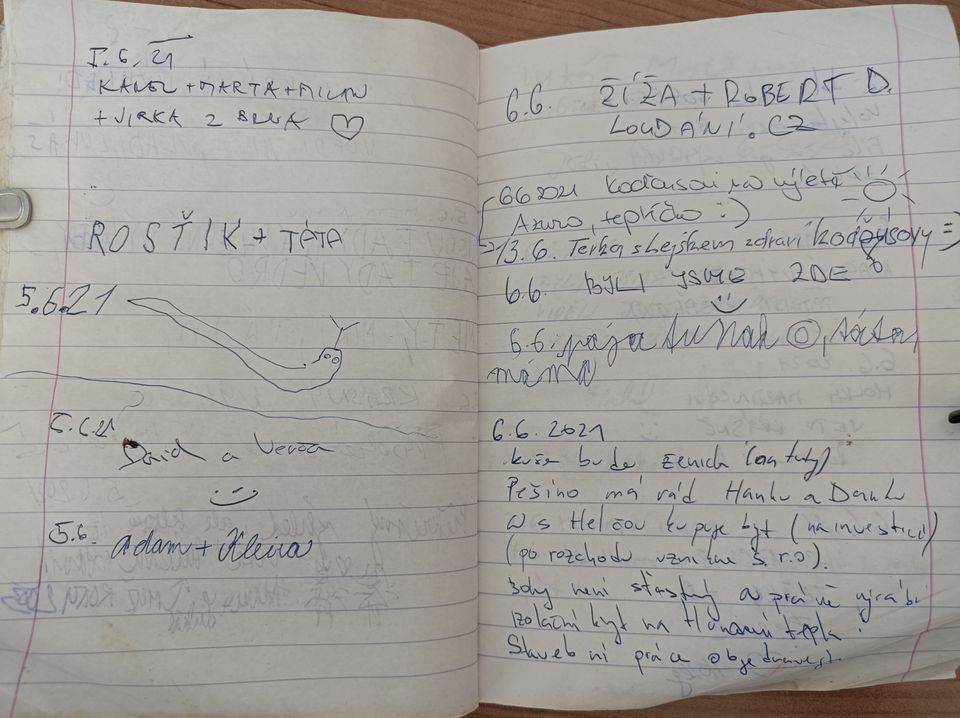 5.6.21
KAREL + MARTA + MILAN
+ JIRKA Z BRNA
ROSŤIK + TÁTA
5.6.21
5.6.21
David a Verča
5.6. Adam + Klára
6.6. ZÍZA + ROBERT D.
LOUDÁNÍ.CZ
6.6 2021 na výletě
Azuro, teplíčko :)
→ 13.6. Terka s hejskem zdraví =)
6.6. BYLI JSME ZDE
6.6. pája, táta,
máma
6.6.2021
bude ženich
Pešino má rád Hanku a Danku
W s Helčou kupuje byt (na investici)
(po rozchodu vznikne s.r.o).
není šťastný a právě vyrábí
izolační kryt na tepla.
Stavební práce